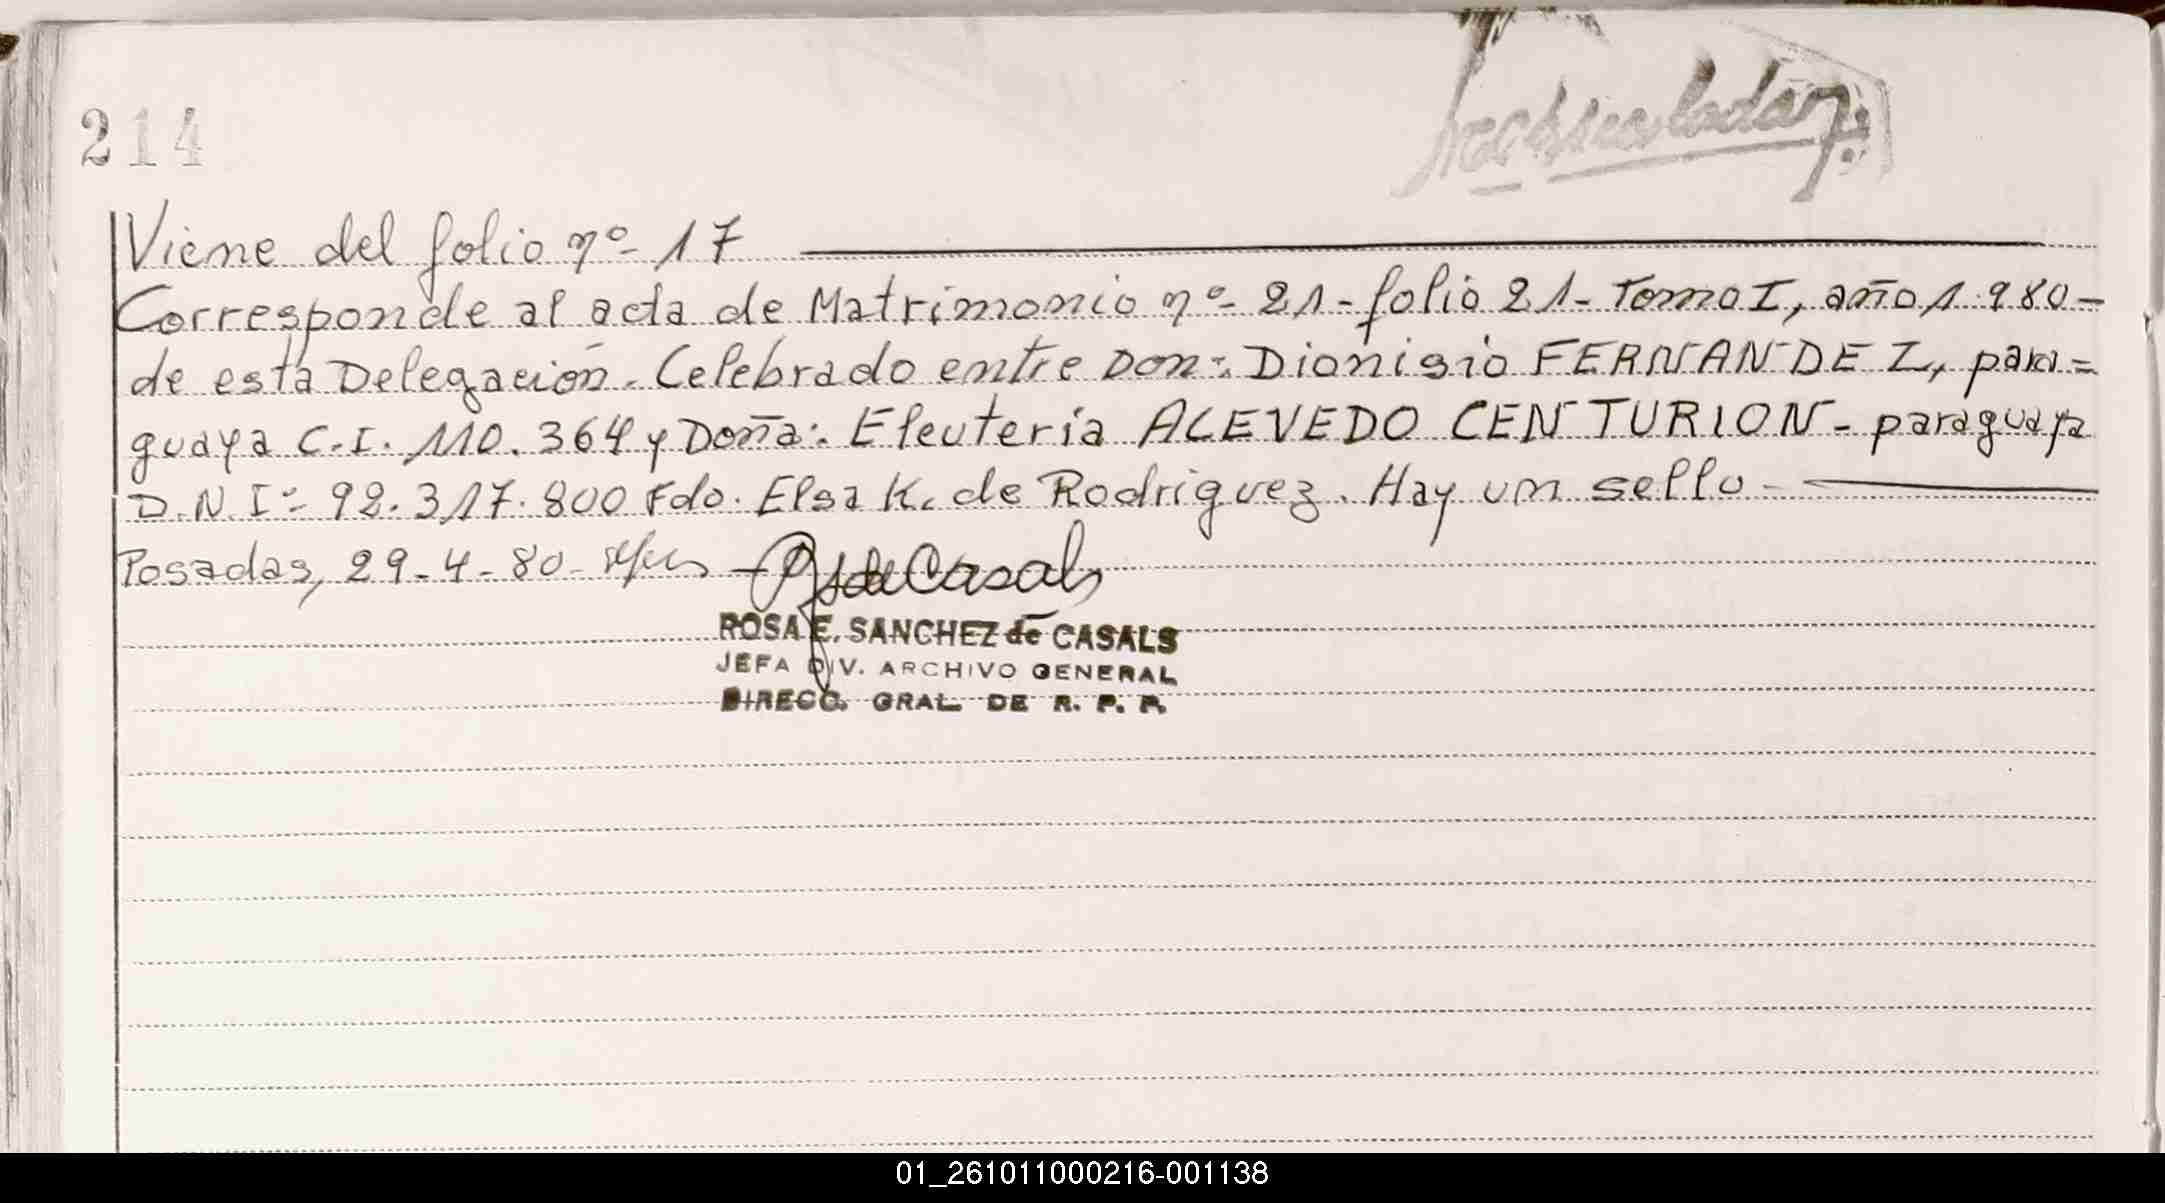 214
Viene del folio nº 17
Corresponde al acta de Matrimonio nº 21 - folio 21 - Tomo I, año 1.980 -
de esta Delegación. Celebrado entre Don: Dionisio FERNANDEZ, para=
guaya C.I. 110.364 y Doña: Eleuteria ACEVEDO CENTURION - paraguaya
D.N.I: 92.317.800 Fdo. Elsa K. de Rodriguez. Hay un sello -
Posadas, 29-4-80-
ROSA E. SANCHEZ de CASALS
JEFA DIV. ARCHIVO GENERAL
DIRECC. GRAL. DE R. P. P.
01_261011000216-001138